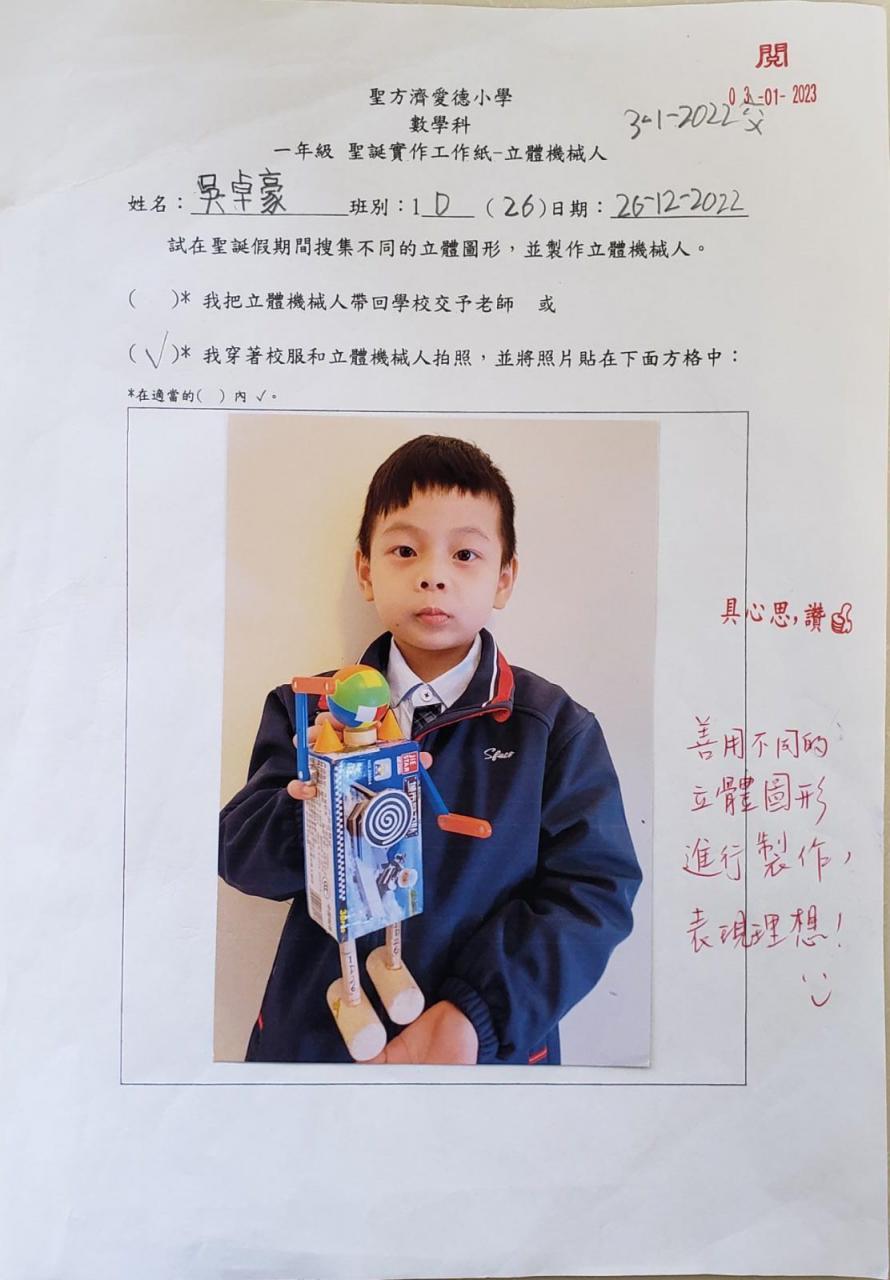 閱
聖方濟愛德小學
0 3 -01- 2023
數學科
3-1-2022
一年級 聖誕實作工作紙-立體機械人
姓名：吳卓豪 班別：1 D (26) 日期：26-12-2022
試在聖誕假期間搜集不同的立體圖形，並製作立體機械人。
(　)* 我把立體機械人帶回學校交予老師　或
(√)* 我穿著校服和立體機械人拍照，並將照片貼在下面方格中：
*在適當的(　) 內 ✓。
具心思,讚
Sfaes
善用不同的
立體圖形
進行製作，
表現理想！